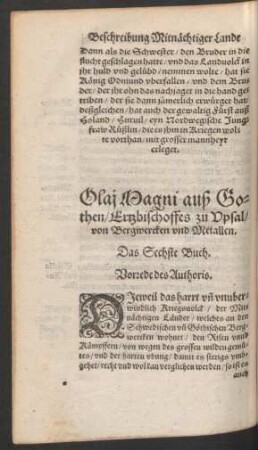 Beschreibung Mitnächtiger Lande
Dann als die Schwester / den Bruder in die
flucht geschlagen hatte / vnd das Landuolck in
ihr huld vnd gelübd / nemmen wolte / hat sie
König Odmund vberfallen / vnd dem Bru-
der / der ihr ohn das nachjaget in die hand ge-
triben / der sie dann jämerlich erwürget hat /
deßgleichen / hat auch der gewaltig Fürst auß
Holand / eyn Nordwegische Jung-
fraw Rüßlin / die eu ihm in Kriegen wol-
te vorthan / mit grosser mannheyt
erleget.
Olaj Magni auß Go-
then / Ertzbischoffes zu Vpsal /
von Bergwercken vnd Metallen.
Das Sechste Buch.
Vorrede des Authoris.
DJeweil das harrt vñ vnuber-
windtlich Kriegsuolck / der Mit-
nächtigen Länder / welches an den
Schwedischen vñ Göthischen Berg-
wercken wohnet / den Risen vnnd
Kämpffern / von wegen des grossen wilden gemü-
tes / vnd der harten vbung / damit es stetigs vmb-
gehet / recht vnd wol kan verglichen werden / so ist es
auch